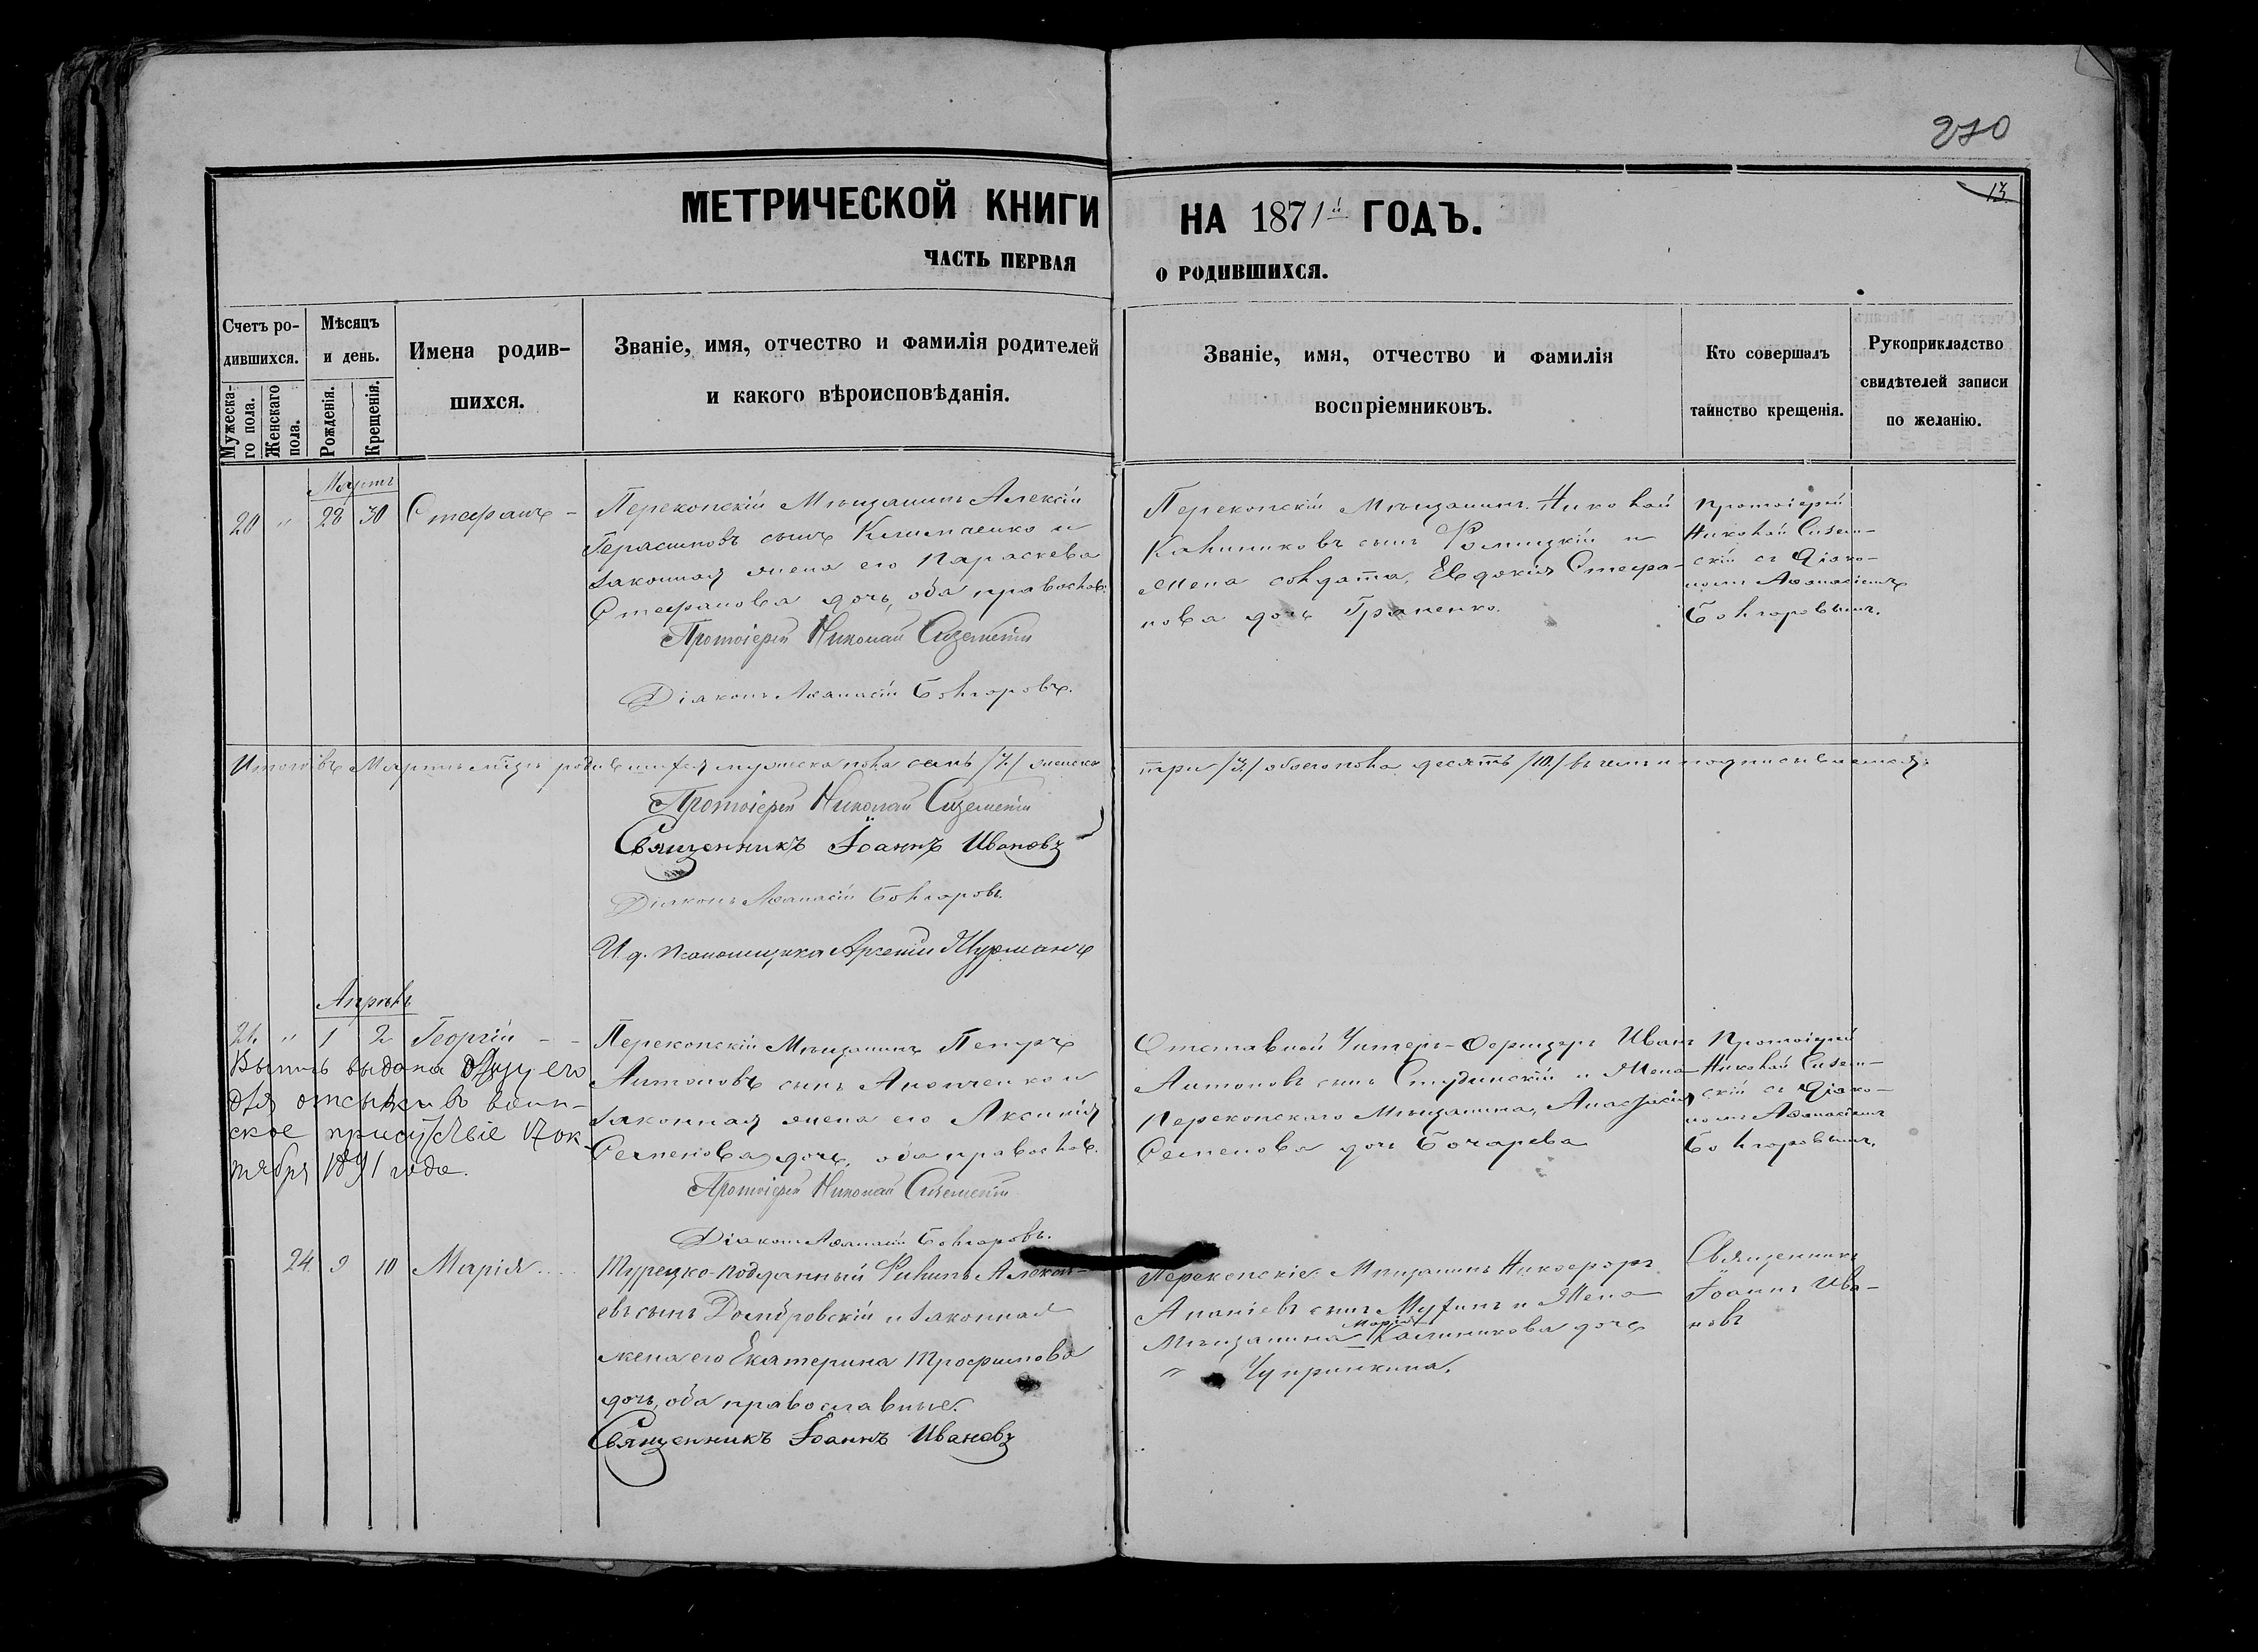 270
13.
МЕТРИЧЕСКОЙ КНИГИ НА 1871й ГОДЪ.
ЧАСТЬ ПЕРВАЯ О РОДИВШИХСЯ.
Счетъ ро-
дившихся.
Мужеска-
го пола.
Женскаго
пола.
Мѣсяцъ
и день.
Рожденія.
Крещенія.
Имена родив-
шихся.
Званіе, имя, отчество и фамилія родителей
и какого вѣроисповѣданія.
Званіе, имя, отчество и фамилія
воспріемниковъ.
Кто совершалъ
таинство крещенія.
Рукоприкладство
свидѣтелей записи
по желанію.
Мартъ
20 " 28 30 Стефанъ -
Перекопскій Мѣщанинъ Алексій
Герасимовъ сынъ Климченко и
законная жена его Параскева
Стефанова дочь, оба православ.
Протоіерей Николай
Діаконъ Аѳанасій Болгоровъ.
Перекопскій Мѣщанинъ Николай
Калиниковъ сынъ и
жена солдата, Евдокія Стефа-
нова дочь
Протоіерей
Николай
скій съ Діако-
номъ Аѳанасіемъ
Болгоровымъ.
Итого въ Мартѣ мѣсяцѣ родившихся мужеска пола семь /7/ женска
три /3/ обоего пола десять /10/ въ чемъ и подписываемся:
Протоіерей Николай
Священникъ Іоаннъ Ивановъ
Діаконъ Аѳанасій Болгоровъ.
И. д. Псаломщика Арсеній
Апрѣль
21. " 1 2 Георгій - -
Выпись выдана отцу его
для отсылки въ воин-
ское присутствіе 17 ок-
тября 1891 года.
Перекопскій Мѣщанинъ Петръ
Антоновъ сынъ и
законная жена его Аксинія
Семенова дочь, оба православ.
Протоіерей Николай
Діаконъ Аѳанасій Болгоровъ.
Отставной Унтеръ-Офицеръ Иванъ
Антоновъ сынъ Студинскій и Жена
Перекопскаго Мѣщанина, Анастасія
Семенова дочь Бочарева
Протоіерей
Николай
скій съ Діако-
номъ Аѳанасіемъ
Болгоровымъ.
24. 9 10 Марія
Турецко-подданный Филипъ Алексѣ-
евъ сынъ Домбровскій и законная
жена его Екатерина Трофимова
дочь, оба православные.
Священникъ Іоаннъ Ивановъ
Перекопскіе: Мѣщанинъ Никифоръ
Ананіевъ сынъ и Жена
Марія
Мѣщанина Калиникова дочь
" Чупринкина.
Священникъ
Іоаннъ Ива-
новъ